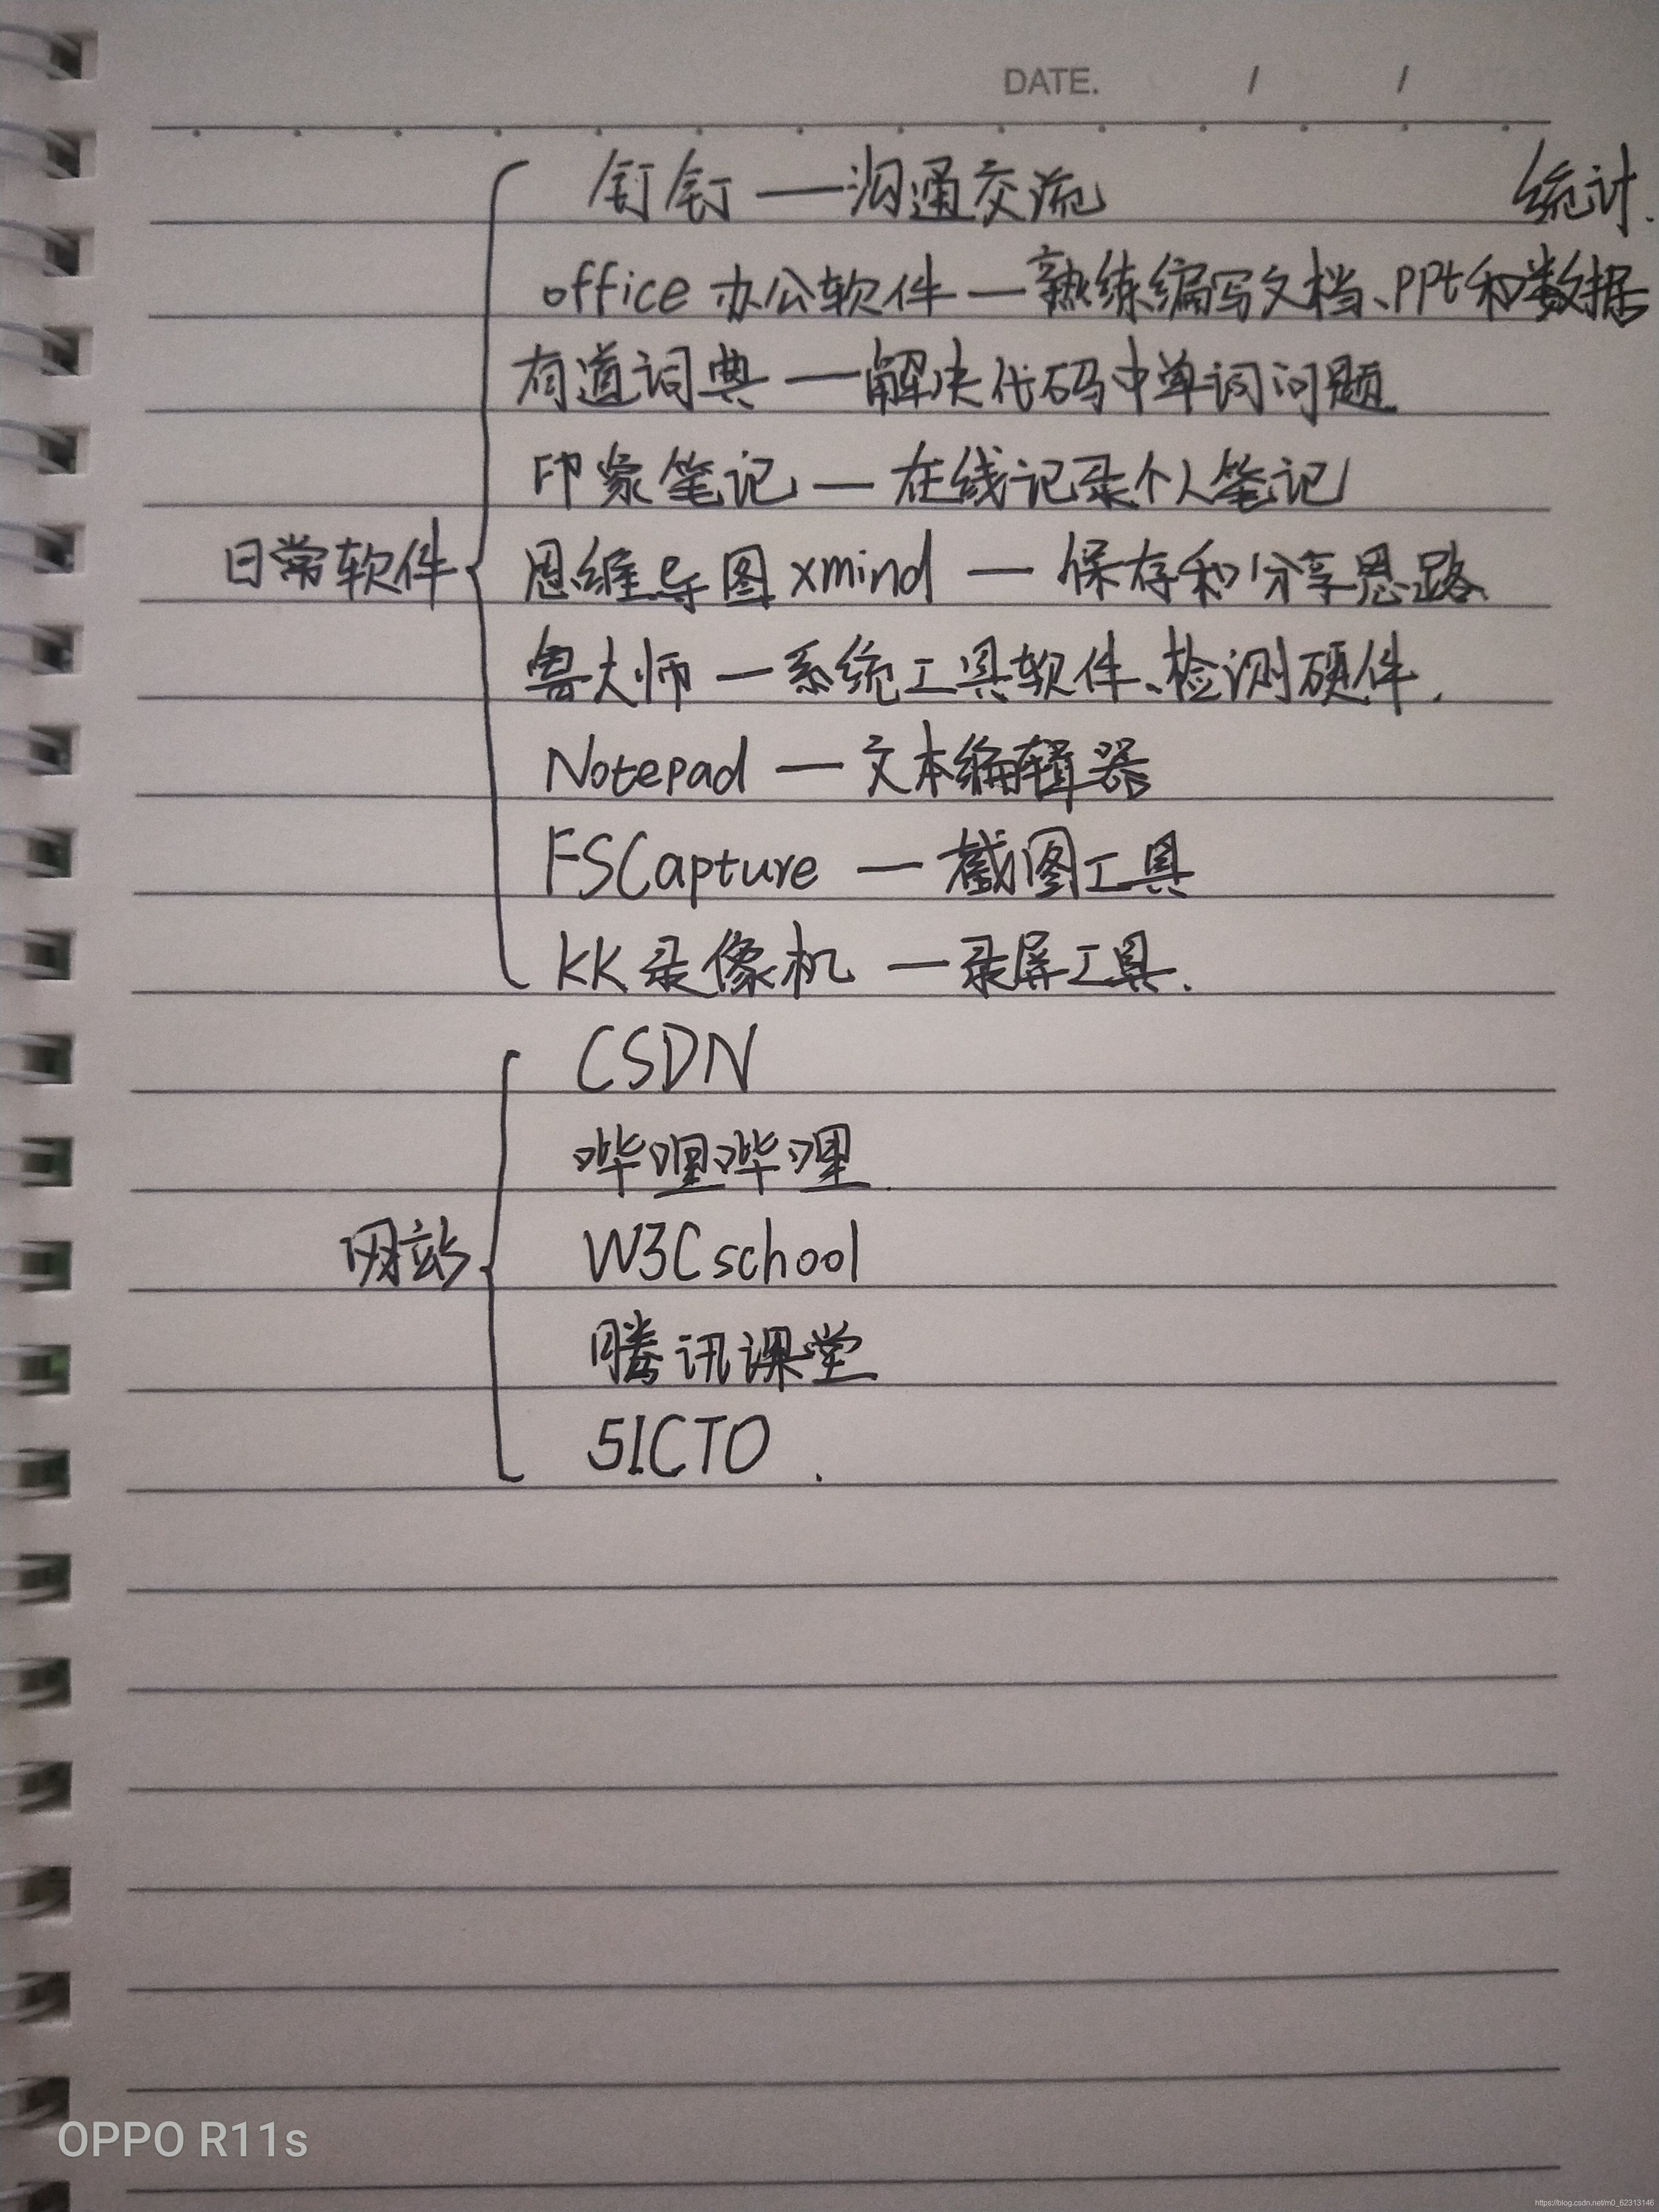 DATE. / /
钉钉 — 沟通交流 统计.
office 办公软件 — 熟练编写文档、PPt和数据
有道词典 — 解决代码中单词问题
印象笔记 — 在线记录个人笔记
日常软件 思维导图 xmind — 保存和分享思路
鲁大师 — 系统工具软件、检测硬件.
Notepad — 文本编辑器
FSCapture — 截图工具
KK录像机 — 录屏工具.
CSDN
哔哩哔哩.
网站 W3Cschool
腾讯课堂
51CTO .
OPPO R11s
https://blog.csdn.net/m0_62313146